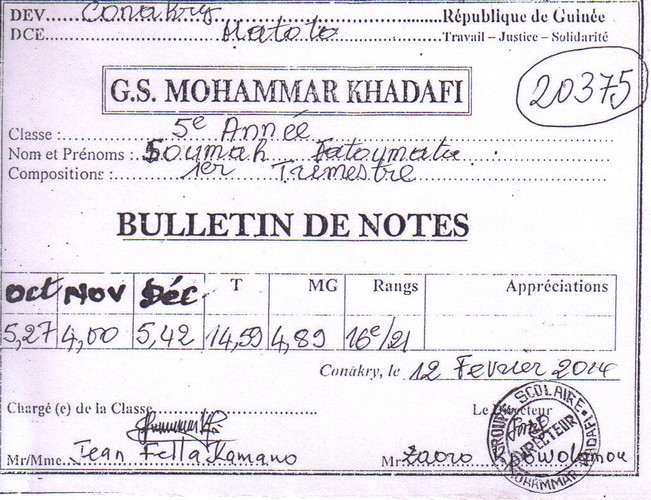 DEV....Conakry....République de Guinée
DCE....Matoto....Travail – Justice – Solidarité
G.S. MOHAMMAR KHADAFI
20375
Classe :....5e Année
Nom et Prénoms :....Soumah Fatoumata
Compositions :....1er Trimestre
BULLETIN DE NOTES
Oct Nov Déc. T MG Rangs Appréciations
5,27 4,00 5,42 14,59 4,89 16e/21
Conakry, le 12 Fevrier 2014
Chargé (e) de la Classe....
Le Directeur
Mr/Mme...Jean Fella Kamano Mr...Zaoro
GROUPE SCOLAIRE
DIRECTEUR